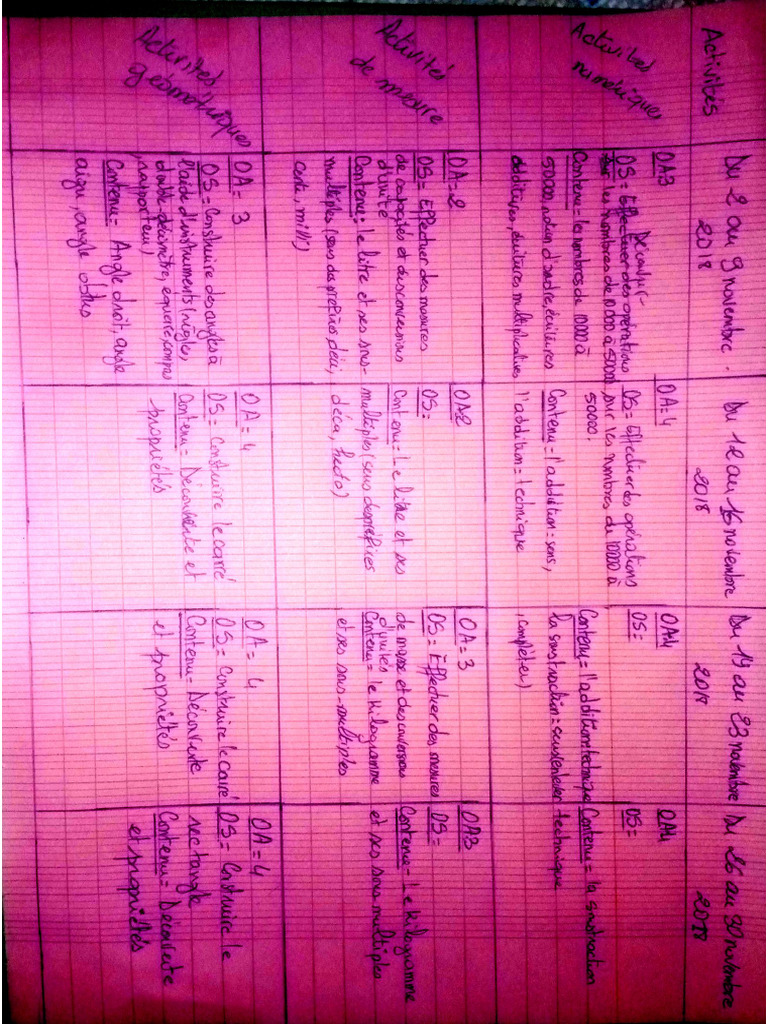 Activités
Du 2 au 9 novembre.
2018
Du 12 au 16 novembre
2018
Du 19 au 23 novembre
2018
Du 26 au 30 novembre
2018
Activités
numériques
OA3
OS = Décomposer
les nombres de 10 000 à 50 000
Contenu = les nombres de 10 000 à
50 000, notion d'ordre, écritures
additives, écritures multiplicatives
OA = 4
OS = Effectuer des opérations
sur les nombres de 10000 à
50000.
Contenu = l'addition = sens,
l'addition = technique
OA4
OS =
Contenu = l'addition technique
la soustraction = sens
, compléter)
OA4
OS =
Contenu = la soustraction
technique
Activités
de mesure
OA = 2
OS = Effectuer des mesures
de capacités et des conversions
d'unité
Contenu = le litre et ses sous-
multiples (sens des préfixes déci,
centi, milli)
OA2
OS =
Contenu = Le litre et ses
multiples (sens des préfixes
déca, hecto)
OA = 3
OS = Effectuer des mesures
de masse et des conversions
d'unités
Contenu = le kilogramme
et ses sous-multiples
OA3
OS =
Contenu = Le kilogramme
et ses sous multiples
Activités
géométriques
OA = 3
OS = Construire des angles à
l'aide d'instruments (règles,
double décimètre, équerre, compas
rapporteur)
Contenu = Angle droit, angle
aigu, angle obtus
OA = 4
OS = Construire le carré
Contenu = Découverte et
propriétés
OA = 4
OS = Construire le carré
Contenu = Découverte
et propriétés
OA = 4
OS = Construire le
rectangle
Contenu = Découverte
et propriétés